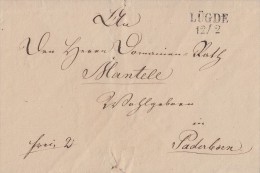 An
LÜGDE
12/2
Den Herrn Domainen Rath
Mantele
Wohlgeboren
in
frei 2
Paderborn